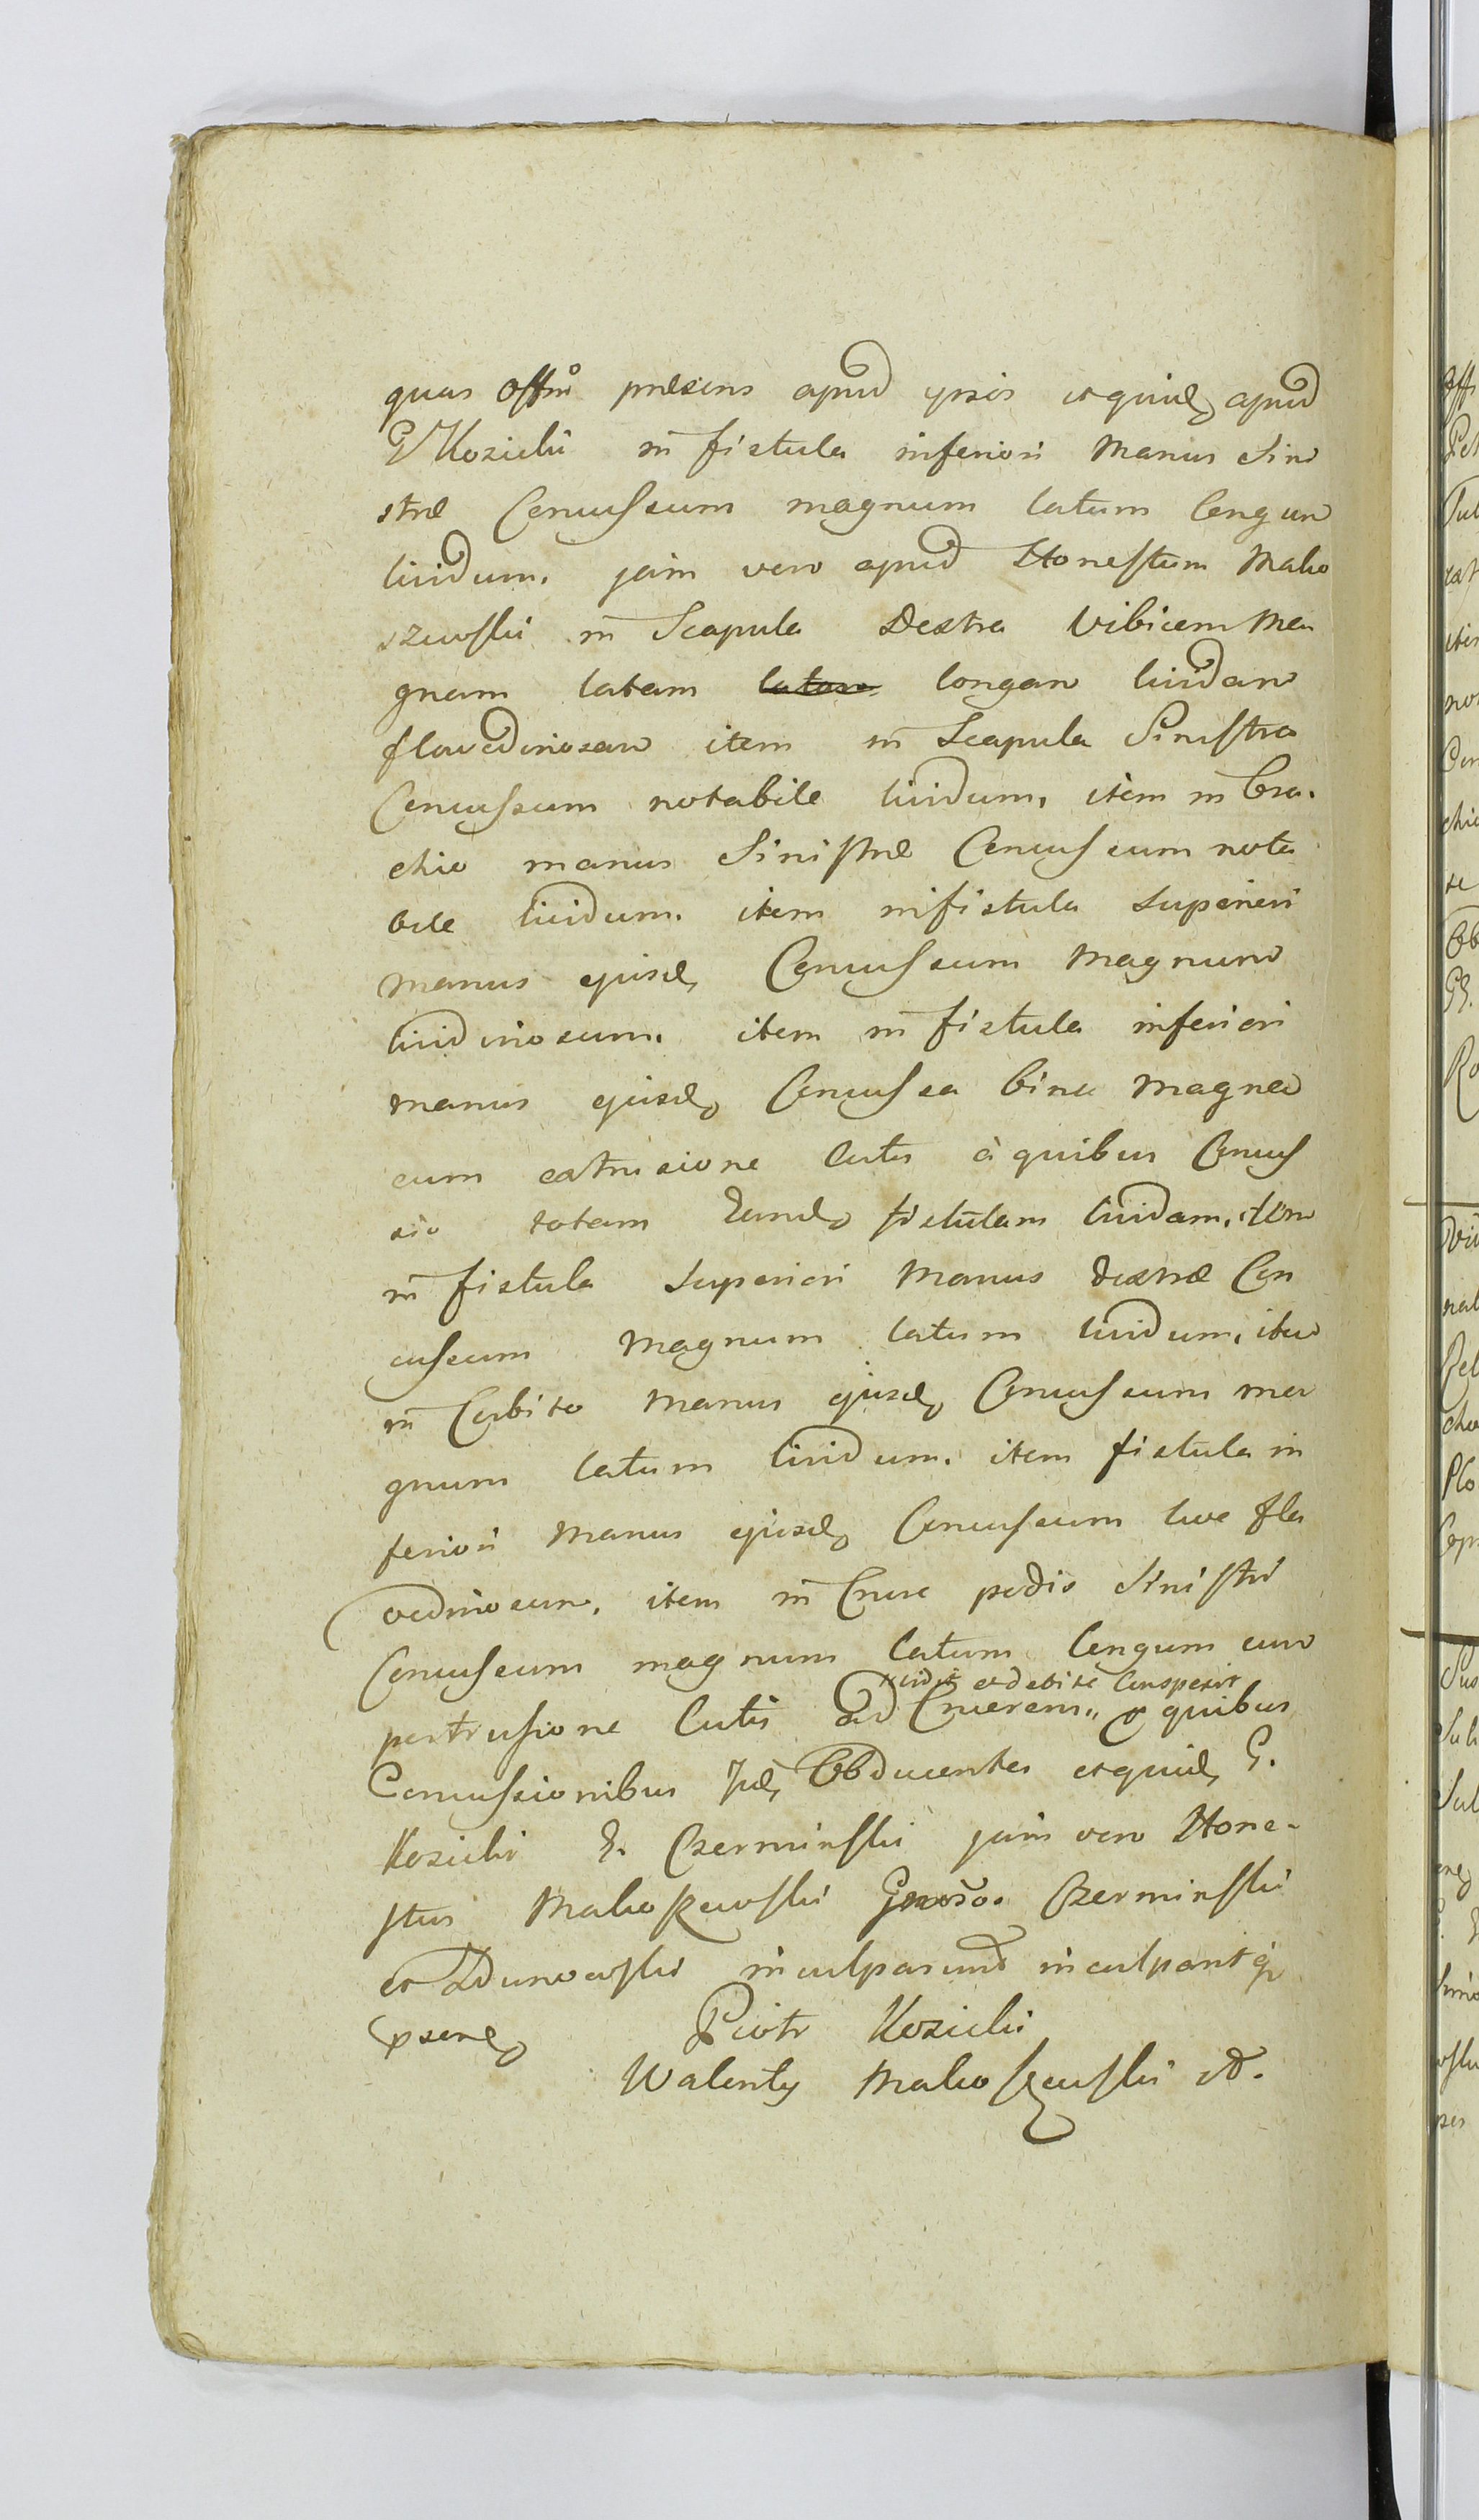 quas Offm̃ præsens apud ipsos etquidẽ apud
G Kozicki in fistula inferiori Manus Sini
stræ Concussum magnum latum longum
lividum. jam vero apud Honestum Mako
szewski in Scapula Dextra Vibicem Ma
gnam latam latam longam lividam
flavedinosam item in Scapula Sinistra
Concussum notabile lividum, item in Bra-
chio manus Sinistræ Concussum nota
bile lividum. item in fistula superiori
manus ejusdẽ Concussum Magnum
lividinosum. item in fistula inferiori
manus ejusdẽ Concussa bina Magna
cum extrusione Cutis à quibus Concus
sio totam Eandẽ fistulam lividam, item
in fistula Superiori Manus dextræ Con
cussum Magnum latum lividum, item
in Cubito Manus ejusdẽ Concussum ma
gnum latum lividum. item fistula in
feriori Manus ejusdẽ Concussum sive fla
vedinosum, item in Crure pedis Sinistri
Concussum magnum latum longum cum
vidit et debite Conspexit
pertrusione Cutis ad Cruorem,, de quibus
Concussionibus Jidẽ Obducentes etquidẽ G.
Kozicki G. Czerminski jam vero Hone-
stus Makoszewski Gnõso. Czerminski
et Dunowski inculparunt inculpantq̃
Præsenẽ Piotr Kozicki
Walenty Makoszewski